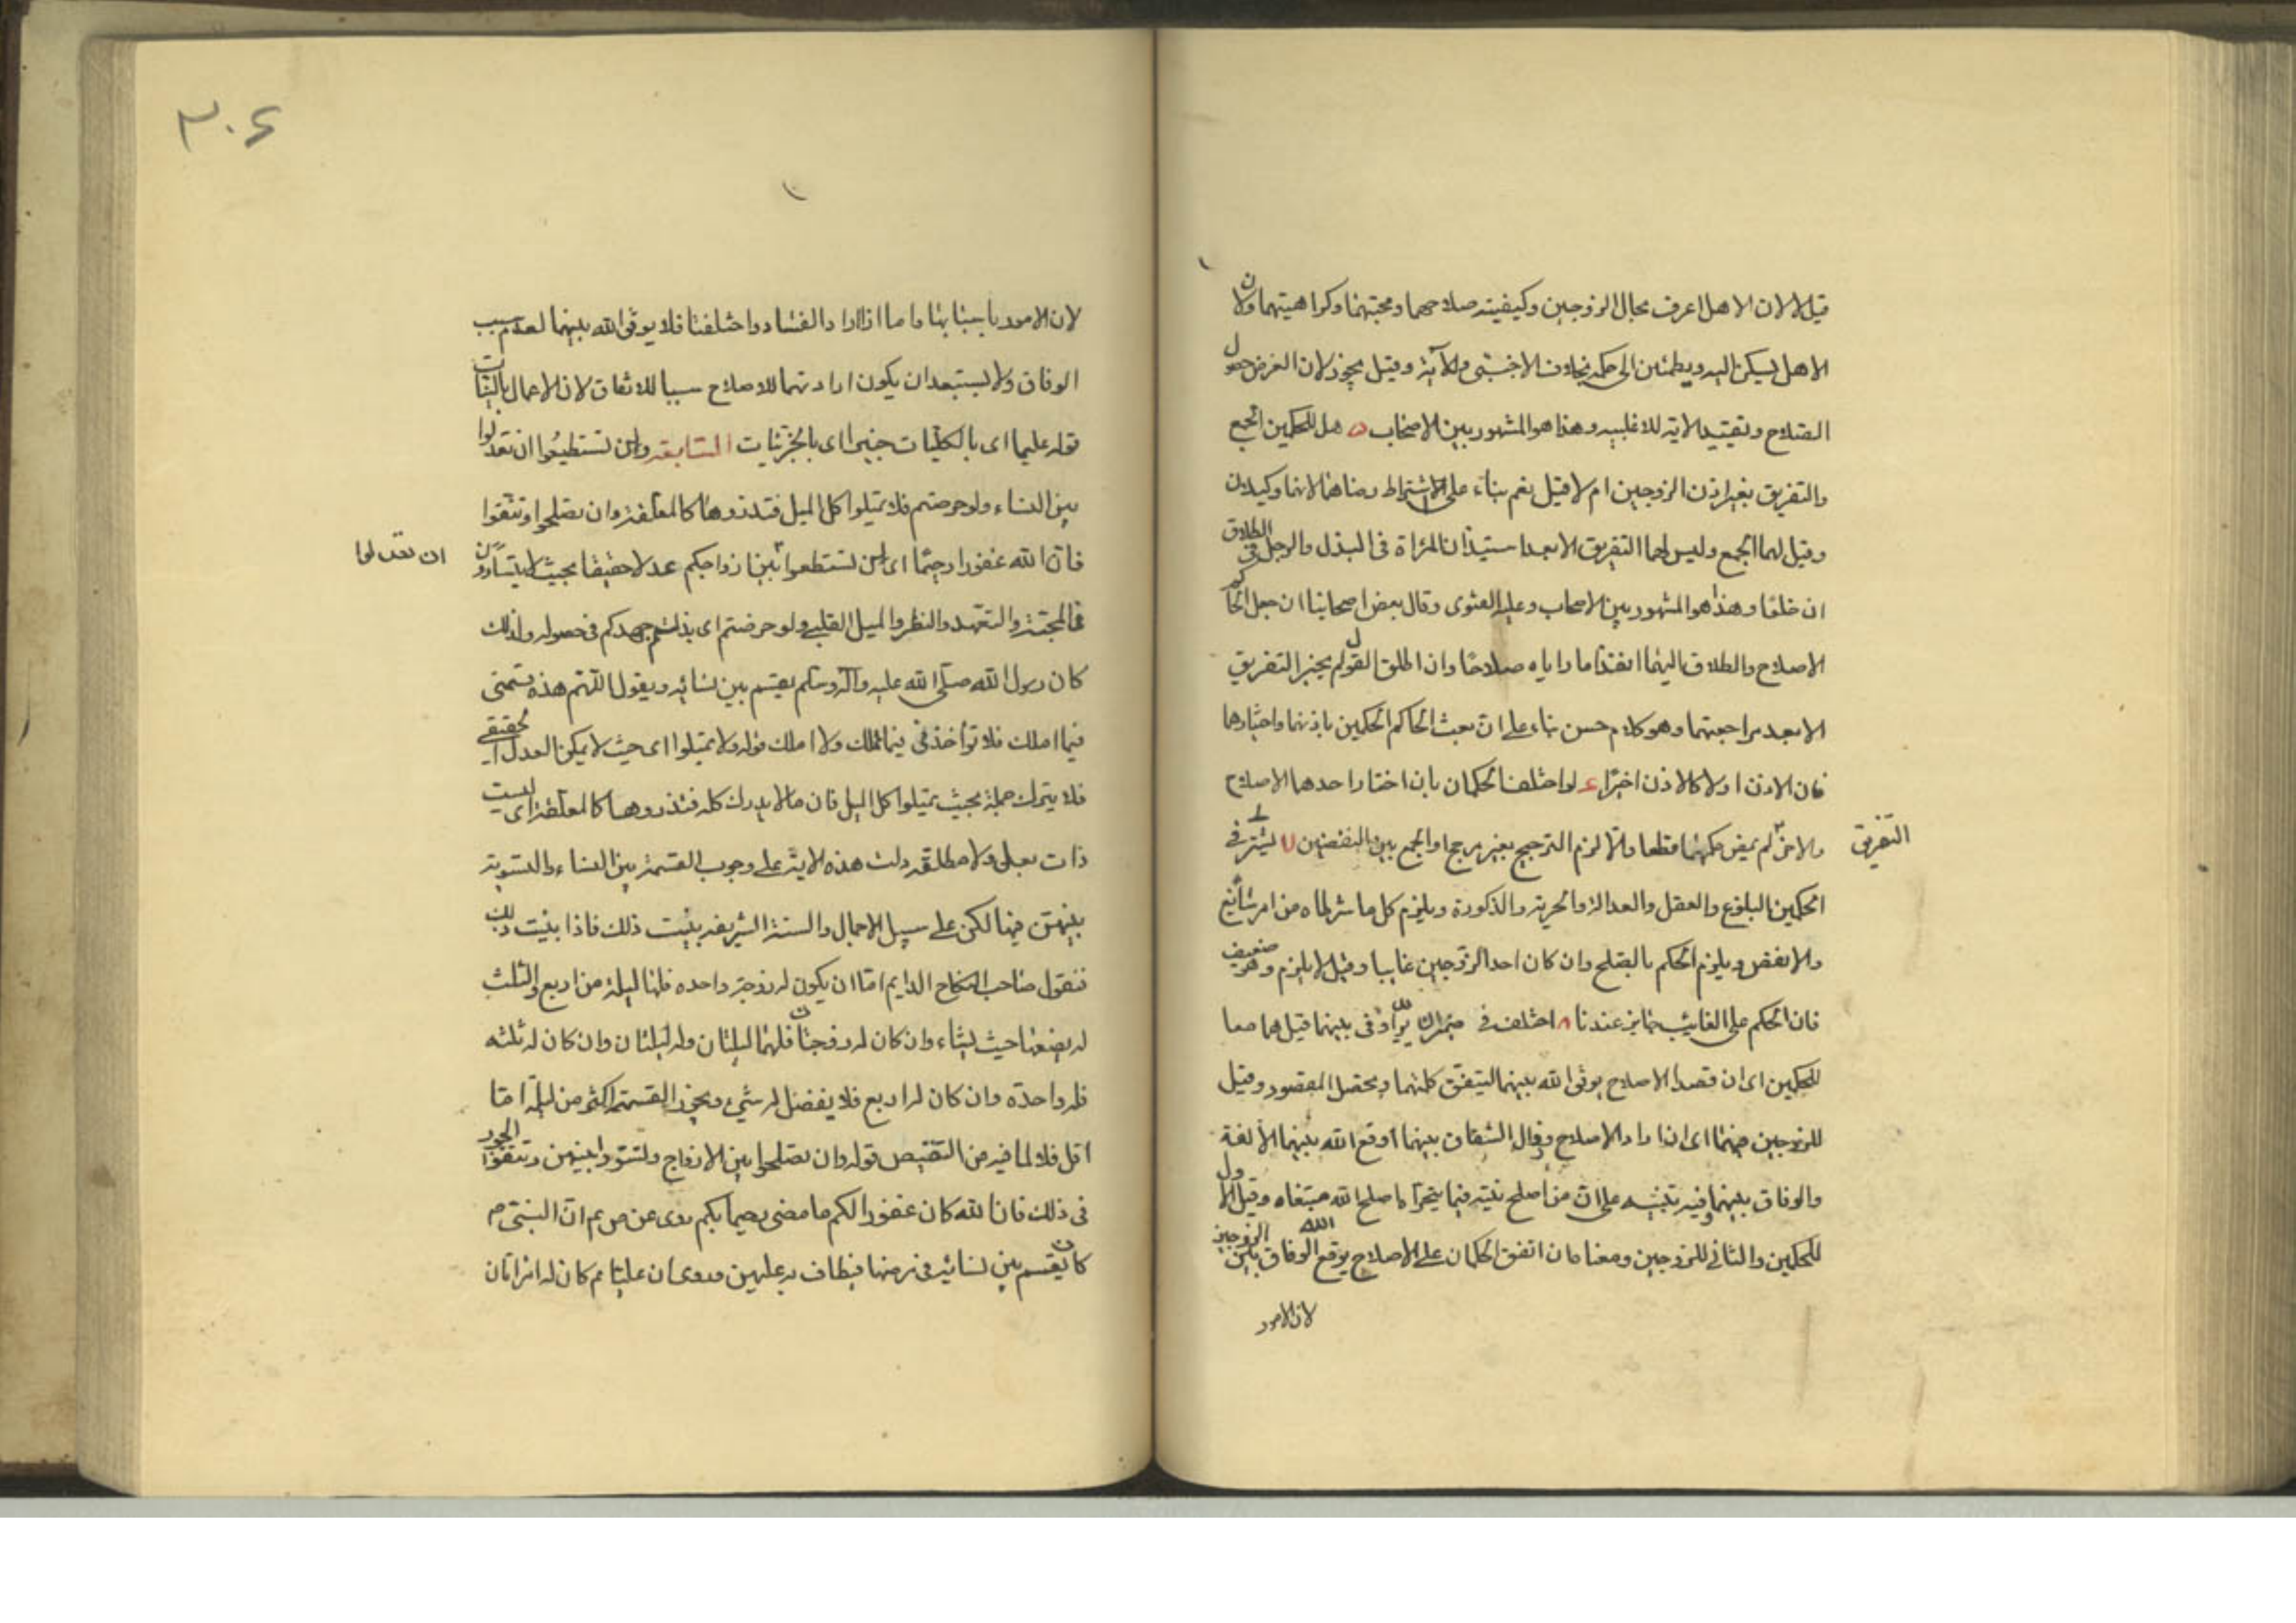 قيل لا لان الاهل اعرف بحال الزوجين وكيفية صلاحهما ومحبتهما وكراهيتهما ولان
الاهل يسكن اليه ويطمئن الى حكمه بخلاف الاجنبى وللآية وقيل يجوز لان الغرض حصول
الصلاح وتقييد الاية للاغلبيه وهذا هو المشهور بين الاصحاب ه هل للحكمين الجمع
والتفريق بغير اذن الزوجين ام لا قيل نعم بناء على اشتراط رضاهما لانهما وكيلان
وقيل لهما الجمع وليس لهما التفريق الا بعد استيذان المرأة فى البذل والرجل فى الطلاق
ان خلعا وهذا هو المشهور بين الاصحاب وعليه الفتوى وقال بعض اصحابنا ان جعل الحاكم
الاصلاح والطلاق اليهما انفذا ما راياه صلاحا وان اطلق القول لم يجز التفريق
الا بعد مراجعتهما وهو كلام حسن بناء على ان بعث الحاكم الحكمين باذنهما واختيارهما
فان الاذن اولا كالاذن اخيرا ء لو اختلف الحكمان بان اختار احدهما الاصلاح
والاخر لم يمض حكمهما قطعا والا لزم الترجيح بغير مرجح او الجمع بين النقيضين لا يشترط فى
التفريق
الحكمين البلوغ والعقل والعدالة والحرية والذكورة ويلزم كل ما شرطاه من امر سائغ
والا نقض ويلزم الحكم بالصلح وان كان احد الزوجين غايبا وقيل لا يلزم وهو ضعيف
فان الحكم على الغائب جايز عندنا ه اختلف فى يوفق بينهما قيل هما معا
للحكمين اى ان قصدا الاصلاح يوفق الله بينهما ليتفق كلمتهما ويحصل المقصود وقيل
للزوجين ضمنا اى ان ارادا الاصلاح وزال الشقاق بينهما اوقع الله بينهما الألفة
والوفاق بينهما وفيه تنبيه على ان من اصلح نيته فيما يتحراه اصلح الله مبتغاه وقيل الاول
للحكمين والثانى للزوجين ومعناه ان اتفق الحكمان على الاصلاح يوقع الله الوفاق بين الزوجين
لان الامور
٣٠٤
لان الامور باسبابها واما اذا ارادا الفساد واختلفتا فلا يوفق الله بينهما لعدم سبب
الوفاق ولا يستبعد ان يكون ارادتهما للاصلاح سببا للاتفاق لان الاعمال بالنيات
قوله عليما اى بالكليات خبيرا اى بالجزئيات السابعة ولن تستطيعوا ان تعدلوا
بين النساء ولو حرصتم فلا تميلوا كل الميل فتذروها كالمعلقة وان تصلحوا وتتقوا
فان الله غفورا رحيما اى لن تستطيعوا بين ازواجكم عدلا حقيقيا بحيث لا يتساوون
ان تعدلوا
فى المحبة والتعهد والنظر والميل القلبى ولو حرصتم اى بذلتم جهدكم فى حصوله ولذلك
كان رسول الله صلى الله عليه وآله وسلم يقسم بين نسائه ويقول اللهم هذه قسمتى
فيما املك فلا تؤاخذنى فيما تملك ولا املك قوله ولا تميلوا اى حيث لا يمكن العدل الحقيقى
فلا يترك جملة بحيث تميلوا كل الميل فان ما لا يدرك كله فتذروها كالمعلقة اى ليست
ذات بعل ولا مطلقة دلت هذه الاية على وجوب القسمة بين النساء والتسوية
بينهن فيها لكن على سبيل الاجمال والسنة الشريفه بينت ذلك فاذا بينت ذلك
فنقول صاحب النكاح الدايم اما ان يكون له زوجة واحده فلها ليلة من اربع والثلث
له يضعها حيث يشاء وان كان له زوجتان فلهما ليلتان وله ليلتان وان كان له ثلثه
فله واحدة وان كان له اربع فلا يفضل له شىء ويجوز القسمة اكثر من ليلة اما
اقل فلا لما فيه من التنقيص قوله وان تصلحوا بين الازواج ولتسووا بينهن وتتقوا الجور
فى ذلك فان الله كان غفورا لكم ما مضى رحيما بكم روى عن ص عم ان النبى ص
كان يقسم بين نسائه فى مرضها فيطاف به عليهن وروى ان عليا عم كان له امراتان